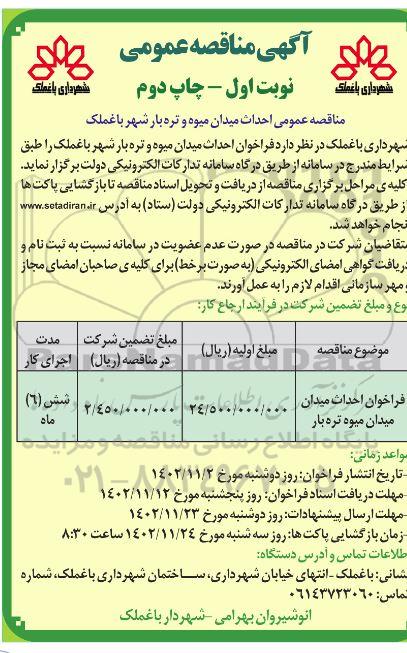 آگهی مناقصه عمومی
نوبت اول - چاپ دوم
شهرداری باغملک
شهرداری باغملک
مناقصه عمومی احداث میدان میوه و تره بار شهر باغملک
شهرداری باغملک در نظر دارد فراخوان احداث میدان میوه و تره بار شهر باغملک را طبق
شرایط مندرج در سامانه از طریق درگاه سامانه تدارکات الکترونیکی دولت برگزار نماید.
کلیه ی مراحل برگزاری مناقصه از دریافت و تحویل اسناد مناقصه تا بازگشایی پاکت ها
از طریق درگاه سامانه تدارکات الکترونیکی دولت (ستاد) به آدرس www.setadiran.ir
انجام خواهد شد.
متقاضیان شرکت در مناقصه در صورت عدم عضویت در سامانه نسبت به ثبت نام و
دریافت گواهی امضای الکترونیکی (به صورت برخط) برای کلیه ی صاحبان امضای مجاز
و مهر سازمانی اقدام لازم را به عمل آورند.
نوع و مبلغ تضمین شرکت در فرآیند ارجاع کار:
موضوع مناقصه | مبلغ اولیه (ریال) | مبلغ تضمین شرکت در مناقصه (ریال) | مدت اجرای کار
فراخوان احداث میدان میدان میوه تره بار | ۲۴/۵۰۰/۰۰۰/۰۰۰ | ۲/۴۵۰/۰۰۰/۰۰۰ | شش (۶) ماه
مواعد زمانی:
-تاریخ انتشار فراخوان: روز دوشنبه مورخ ۱۴۰۲/۱۱/۲
-مهلت دریافت اسناد فراخوان: روز پنجشنبه مورخ ۱۴۰۲/۱۱/۱۲
-مهلت ارسال پیشنهادات: روز دوشنبه مورخ ۱۴۰۲/۱۱/۲۳
-زمان بازگشایی پاکت ها: روز سه شنبه مورخ ۱۴۰۲/۱۱/۲۴ ساعت ۸:۳۰
اطلاعات تماس و آدرس دستگاه:
نشانی: باغملک -انتهای خیابان شهرداری، ساختمان شهرداری باغملک، شماره
تماس: ۰۶۱۴۳۷۲۳۰۶۰
انوشیروان بهرامی -شهردار باغملک
پایگاه اطلاع رسانی مناقصه و مزایده